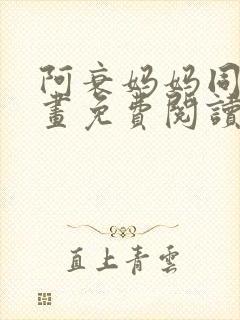 阿衰妈妈同
畫免費閱讀
直上青雲